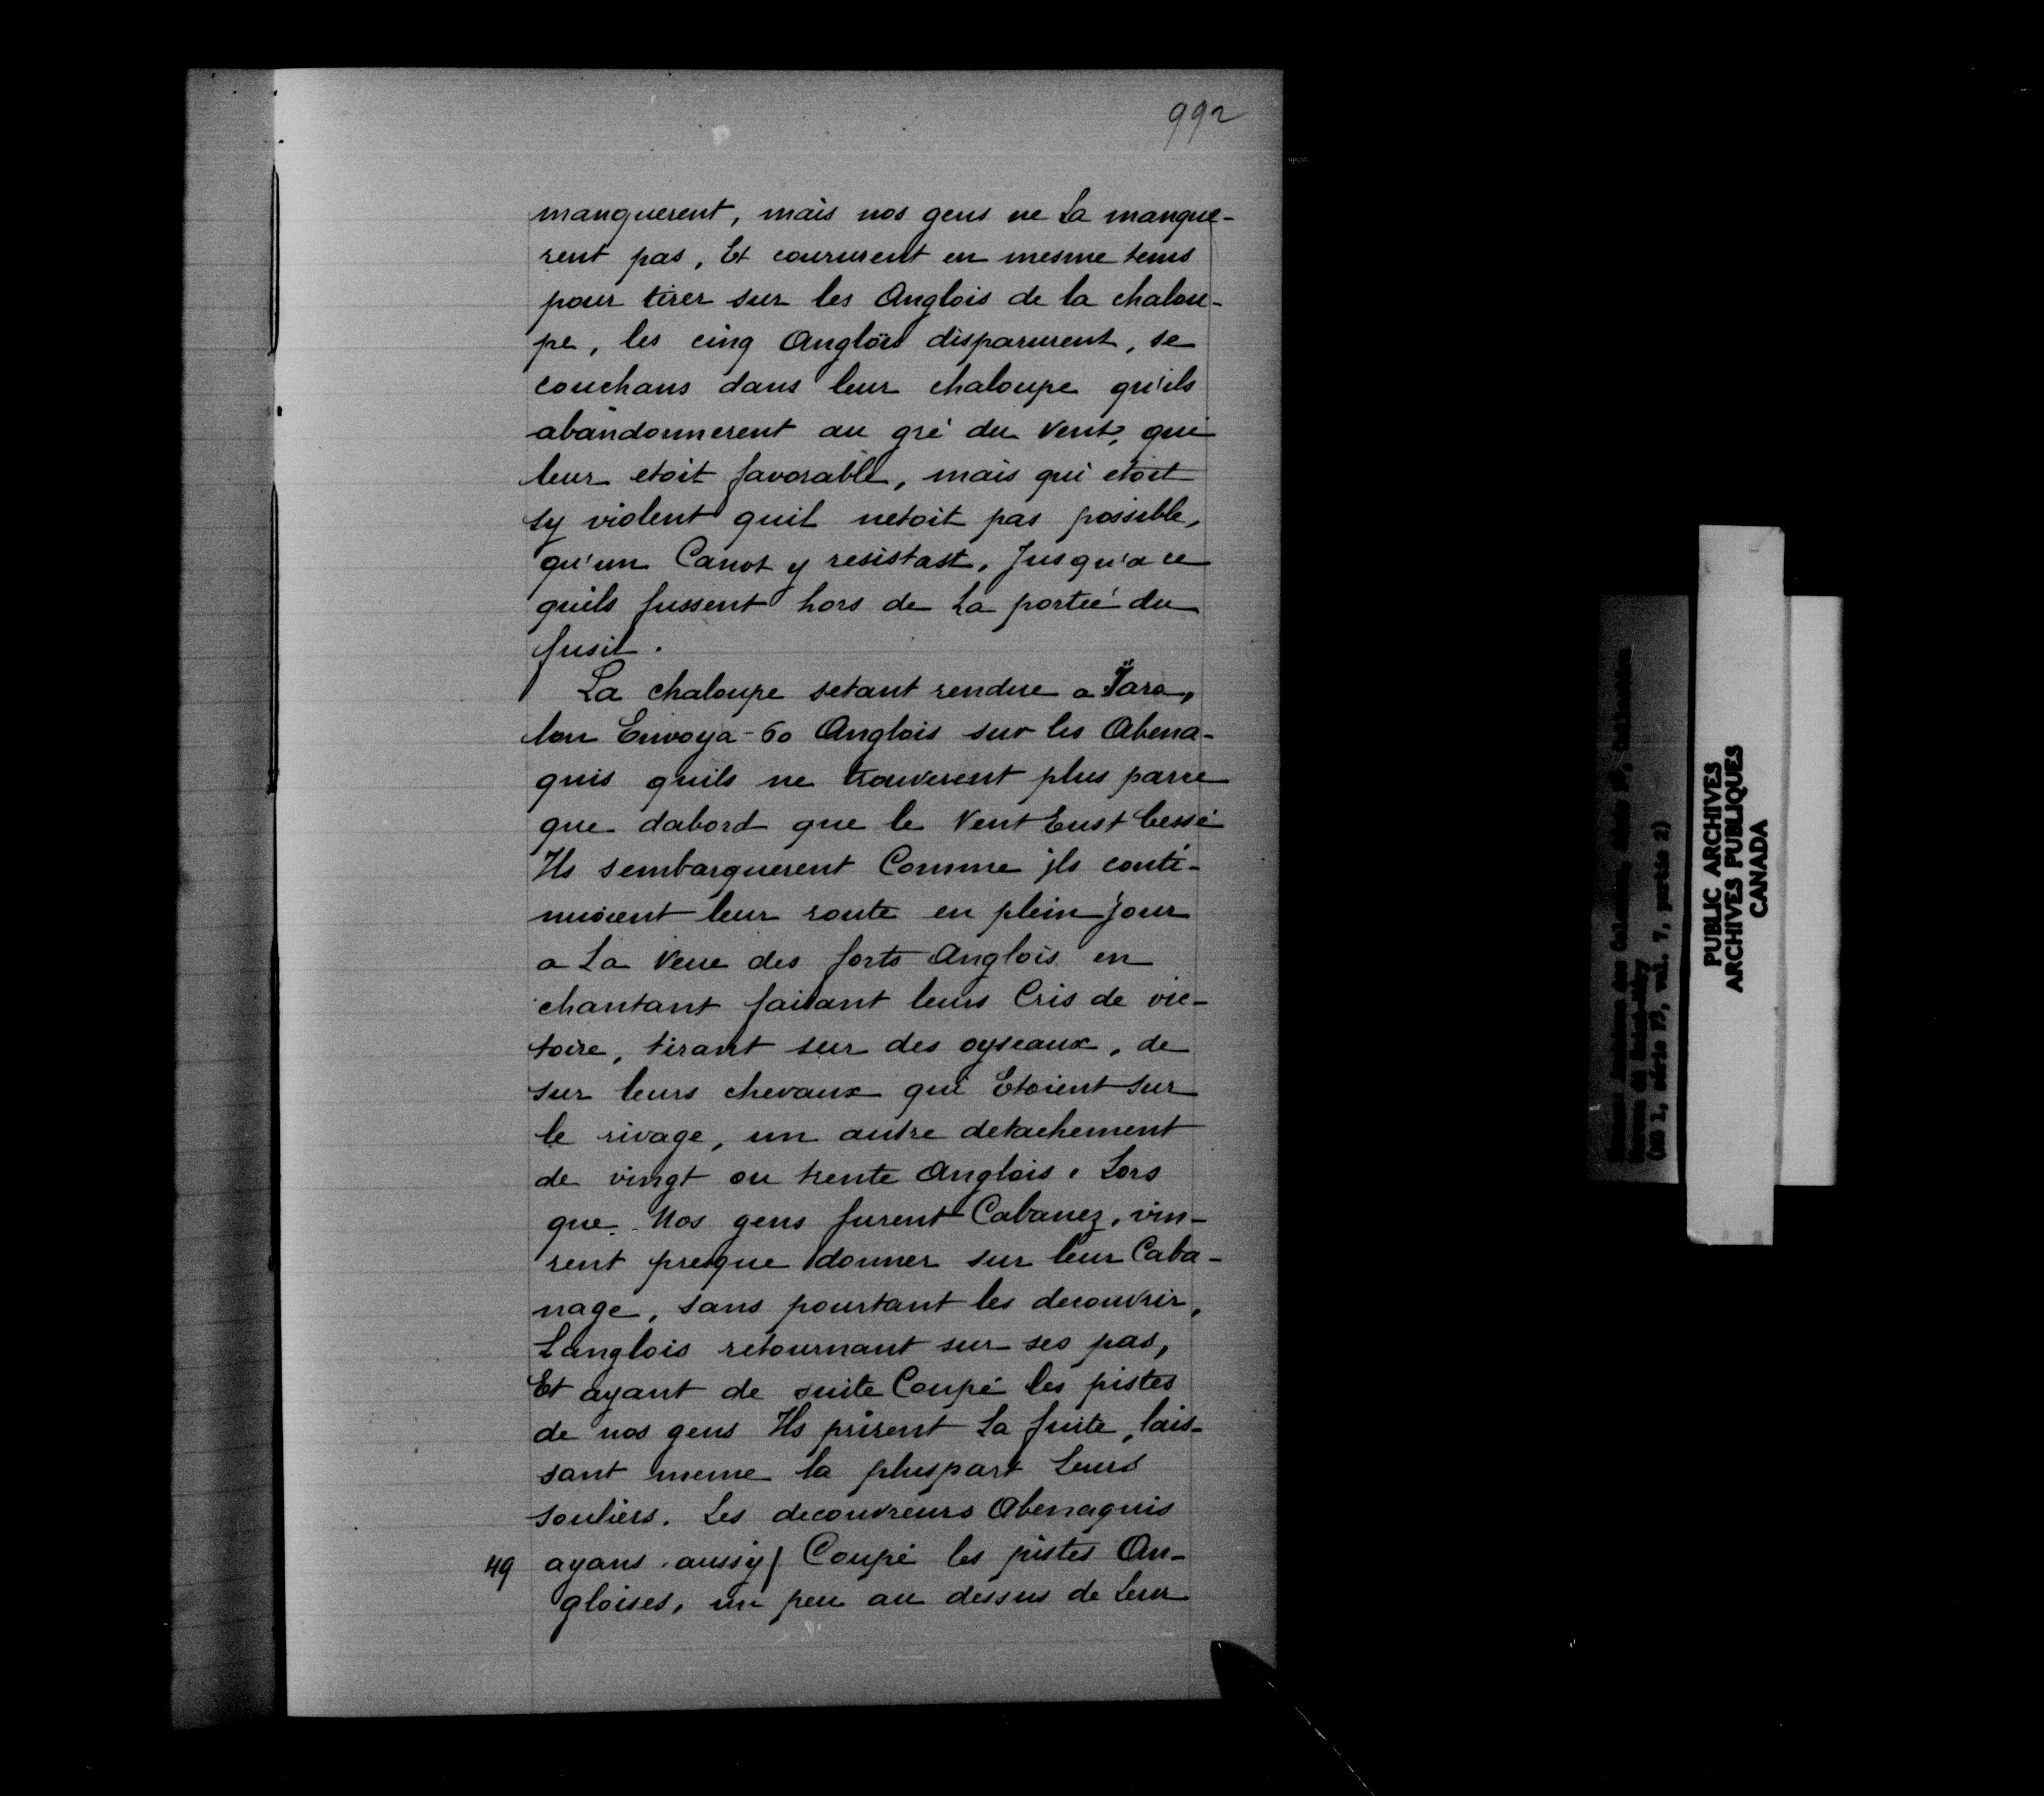 992
manquerent, mais nos gens ne La manque-
rent pas, Et coururent en mesme tems
pour tirer sur les Anglois de la chalou-
pe, les cinq Anglois disparurent, se
couchans dans leur chaloupe qu'ils
abandonnerent au gré du Vent, qui
leur etoit favorable, mais qui etoit
sy violent quil netoit pas possible,
qu'un Canot y resistast, Jusqu'a ce
quils fussent hors de La porteé du
fusil.
La chaloupe setant rendue a
lon Envoya 60 Anglois sur les Abena-
quis quils ne trouverent plus parce
que dabord que le Vent Eust Cessé
Ils sembarquerent Comme jls conti-
nuoient leur route en plein Jour
a La Veue des forts Anglois en
chantant faisant leurs Cris de vic-
toire, tirant sur des oyseaux, de
sur leurs chevaux qui Etoient sur
le rivage, un autre detachement
de vingt ou trente Anglois, Lors
que Nos gens furent Cabanez, vin-
rent presque donner sur leur Caba-
nage, sans pourtant les decouvrir,
Langlois retournant sur ses pas,
Et ayant de suite Coupé les pistes
de nos gens Ils prirent La fuite, lais-
sant meme la pluspart Leurs
souliers. Les decouvreurs Abenaquis
49 ayans aussy/ Coupé les pistes An-
gloises, un peu au dessus de Leur
PUBLIC ARCHIVES
ARCHIVES PUBLIQUES
CANADA
(MG 1, série F3, vol. 7, partie 2)